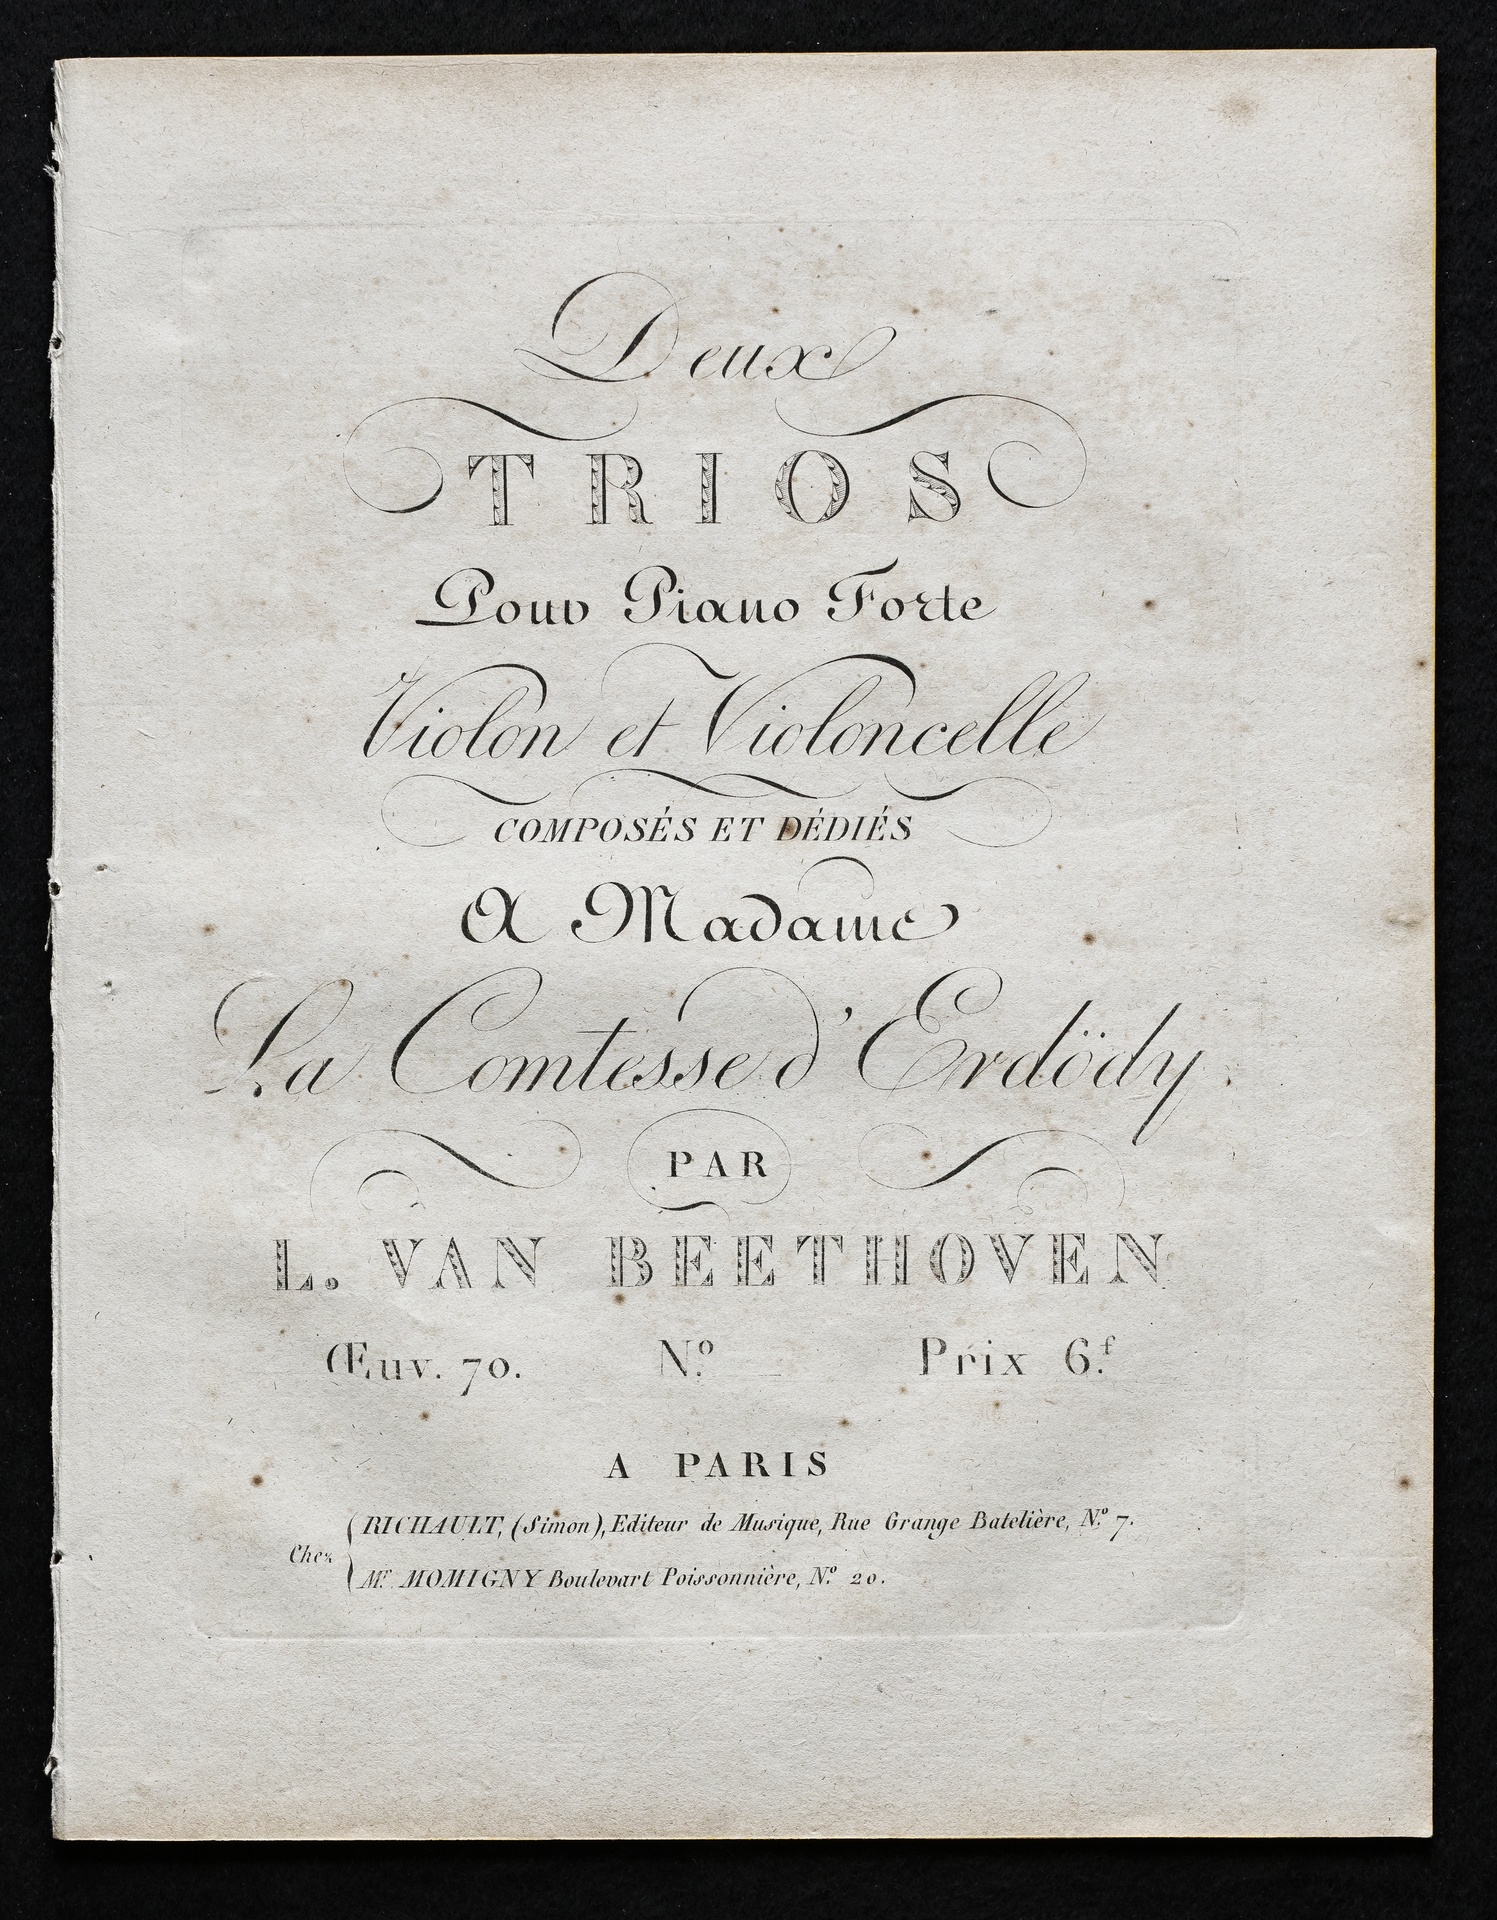 Deux
TRIOS
Pour Piano Forte
Violon et Violoncelle
COMPOSÉS ET DÉDIÉS
A Madame
La Comtesse d'Erdödy.
PAR
L. VAN BEETHOVEN
Œuv. 70. N.º Prix 6.f
A PARIS
Chez
RICHAULT, (Simon), Editeur de Musique, Rue Grange Batelière, N.º 7.
Mr. MOMIGNY Boulevart Poissonnière, N.º 20.